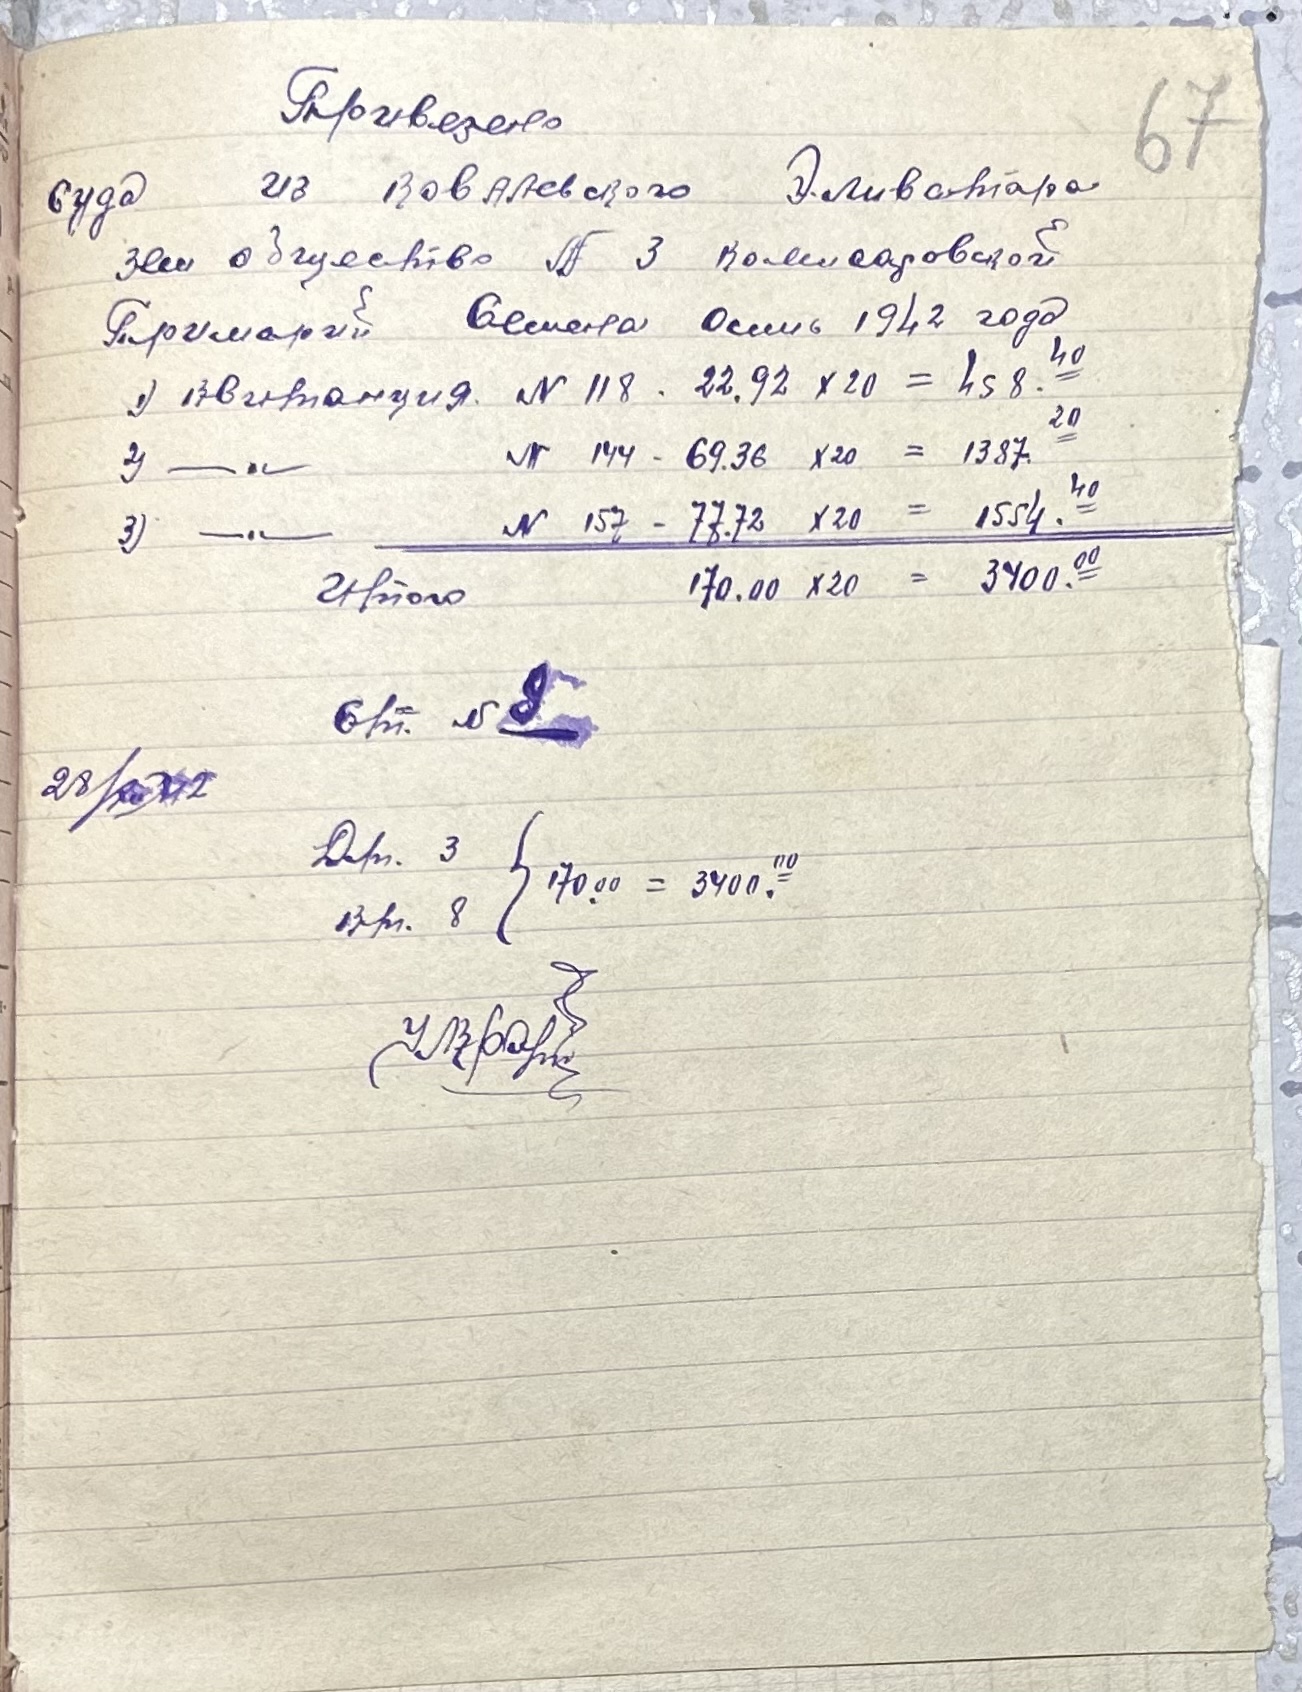 67
Привезено
Суда из Ковалевского Эливатара
Зем общества № 3 Комисаровской
Примарий Семена Осень 1942 года
1) Квитанция. N 118 - 22.92 x 20 = 458.40
2) —"— N 144 - 69.36 x20 = 1387.20
3) —"— N 157 - 77.72 x20 = 1554.40
Итого 170.00 x20 = 3400.00
Ст. N 9
28/
Дт. 3
170.00 = 3400.00
Кт. 8